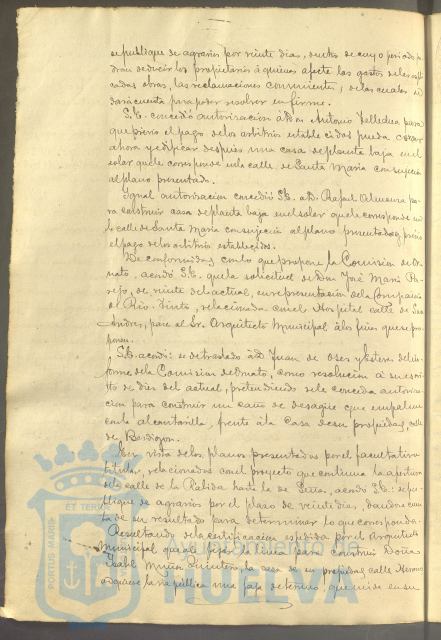 se publique de agravios por veinte dias, dentro de cuyo periodo po
dran deducir los propietarios á quienes afecte los gastos de las
citadas obras, las reclamaciones convenientes, de las cuales se
dará cuenta para poder resolver en firme.
S.E. concedió autorizacion á Don Antonio Velledica para
que previo el pago de los arbitrios establecidos pueda cercar
ahora y edificar después una casa de planta baja en el
solar que le corresponde en la calle de Santa Maria con sujecion
al plano presentado.
Igual autorizacion concedió S.E. a D. Rafael pa
ra construir casa de planta baja en el solar que le corresponde en
la calle de Santa Maria con sujecion al plano presentado y previo
el pago de los arbitrios establecidos.
De conformidad con lo que propone la Comision de Or
nato, acordó S.E. que la solicitud de Don José Maria Pa
rejo, de veinte del actual, en representacion de la Compañia
de Rio-Tinto, relacionada con el Hospital calle de San
Andres, pase al Sr. Arquitecto Municipal á los fines que se pro
ponen.
S.E. acordó: se dé traslado á D. Juan de Oses y Estera del in
forme de la Comision de Ornato, como resolucion á su escri
to de diez del actual, pretendiendo se le conceda autoriza
cion para construir un caño de desagüe que empalme
con la alcantarilla, frente á la Casa de su propiedad, calle
de Berdigon.
En vista de los planos presentados por el facultativo
titular, relacionados con el proyecto que continua la apertura
de la calle de la Rabida hasta la de Peña, acordó S.E. se pu
blique de agravios por el plazo de veinte dias, dandose cuen
ta de su resultado para determinar lo que corresponda.
Resultando de la certificacion espedida por el Arquitecto
Municipal que al fijar la linea para construir Doña
Isabel Muñoz Quintero, la casa de su propiedad calle Heroes
adquiere la via pública una faja de terreno, que mide en su
ET TERRAE
PORTUS MARIS
Ayuntamiento de
HUELVA